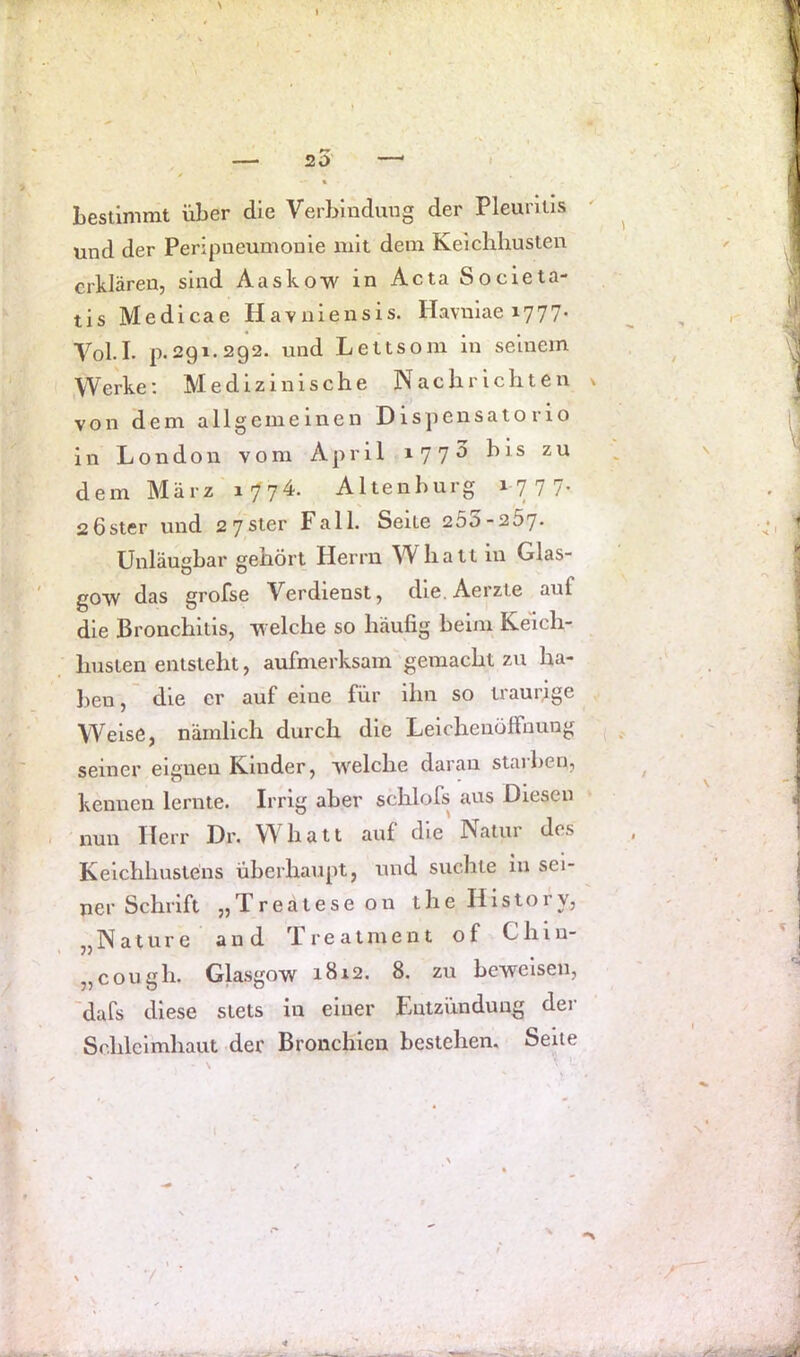 — 23 —
bestimmt über die Verbindung der Pleuritis
und der Peripneumonie mit dem Keichhusten
erklären, sind Aaskow in Acta Societa-
tis Medicae Havniensis. Havniae 1777.
Vol.I. p.291.292. und Lettsom in seinem
Werke: Medizinische Nachrichten
von dem allgemeinen Dispensatorio
in London vom April 1773 bis zu
dem März 1774. Altenburg 1777.
26ster und 27ster Fall. Seite 253-257.
Unläugbar gehört Herrn Whatt in Glas-
gow das grofse Verdienst, die Aerzte auf
die Bronchitis, welche so häufig beim Keich-
husten entsteht, aufmerksam gemacht zu ha-
ben, die er auf eine für ihn so traurige
Weise, nämlich durch die Leichenöffnung
seiner eignen Kinder, welche daran starben,
kennen lernte. Irrig aber schlofs aus Diesen
nun Herr Dr. Whatt auf die Natur des
Keichhustens überhaupt, und suchte in sei-
ner Schrift „Treatese on the History,
„Nature and Treatment of Chin-
„cough. Glasgow 1812. 8. zu beweisen,
dafs diese stets in einer Entzündung der
Schleimhaut der Bronchien bestehen. Seite